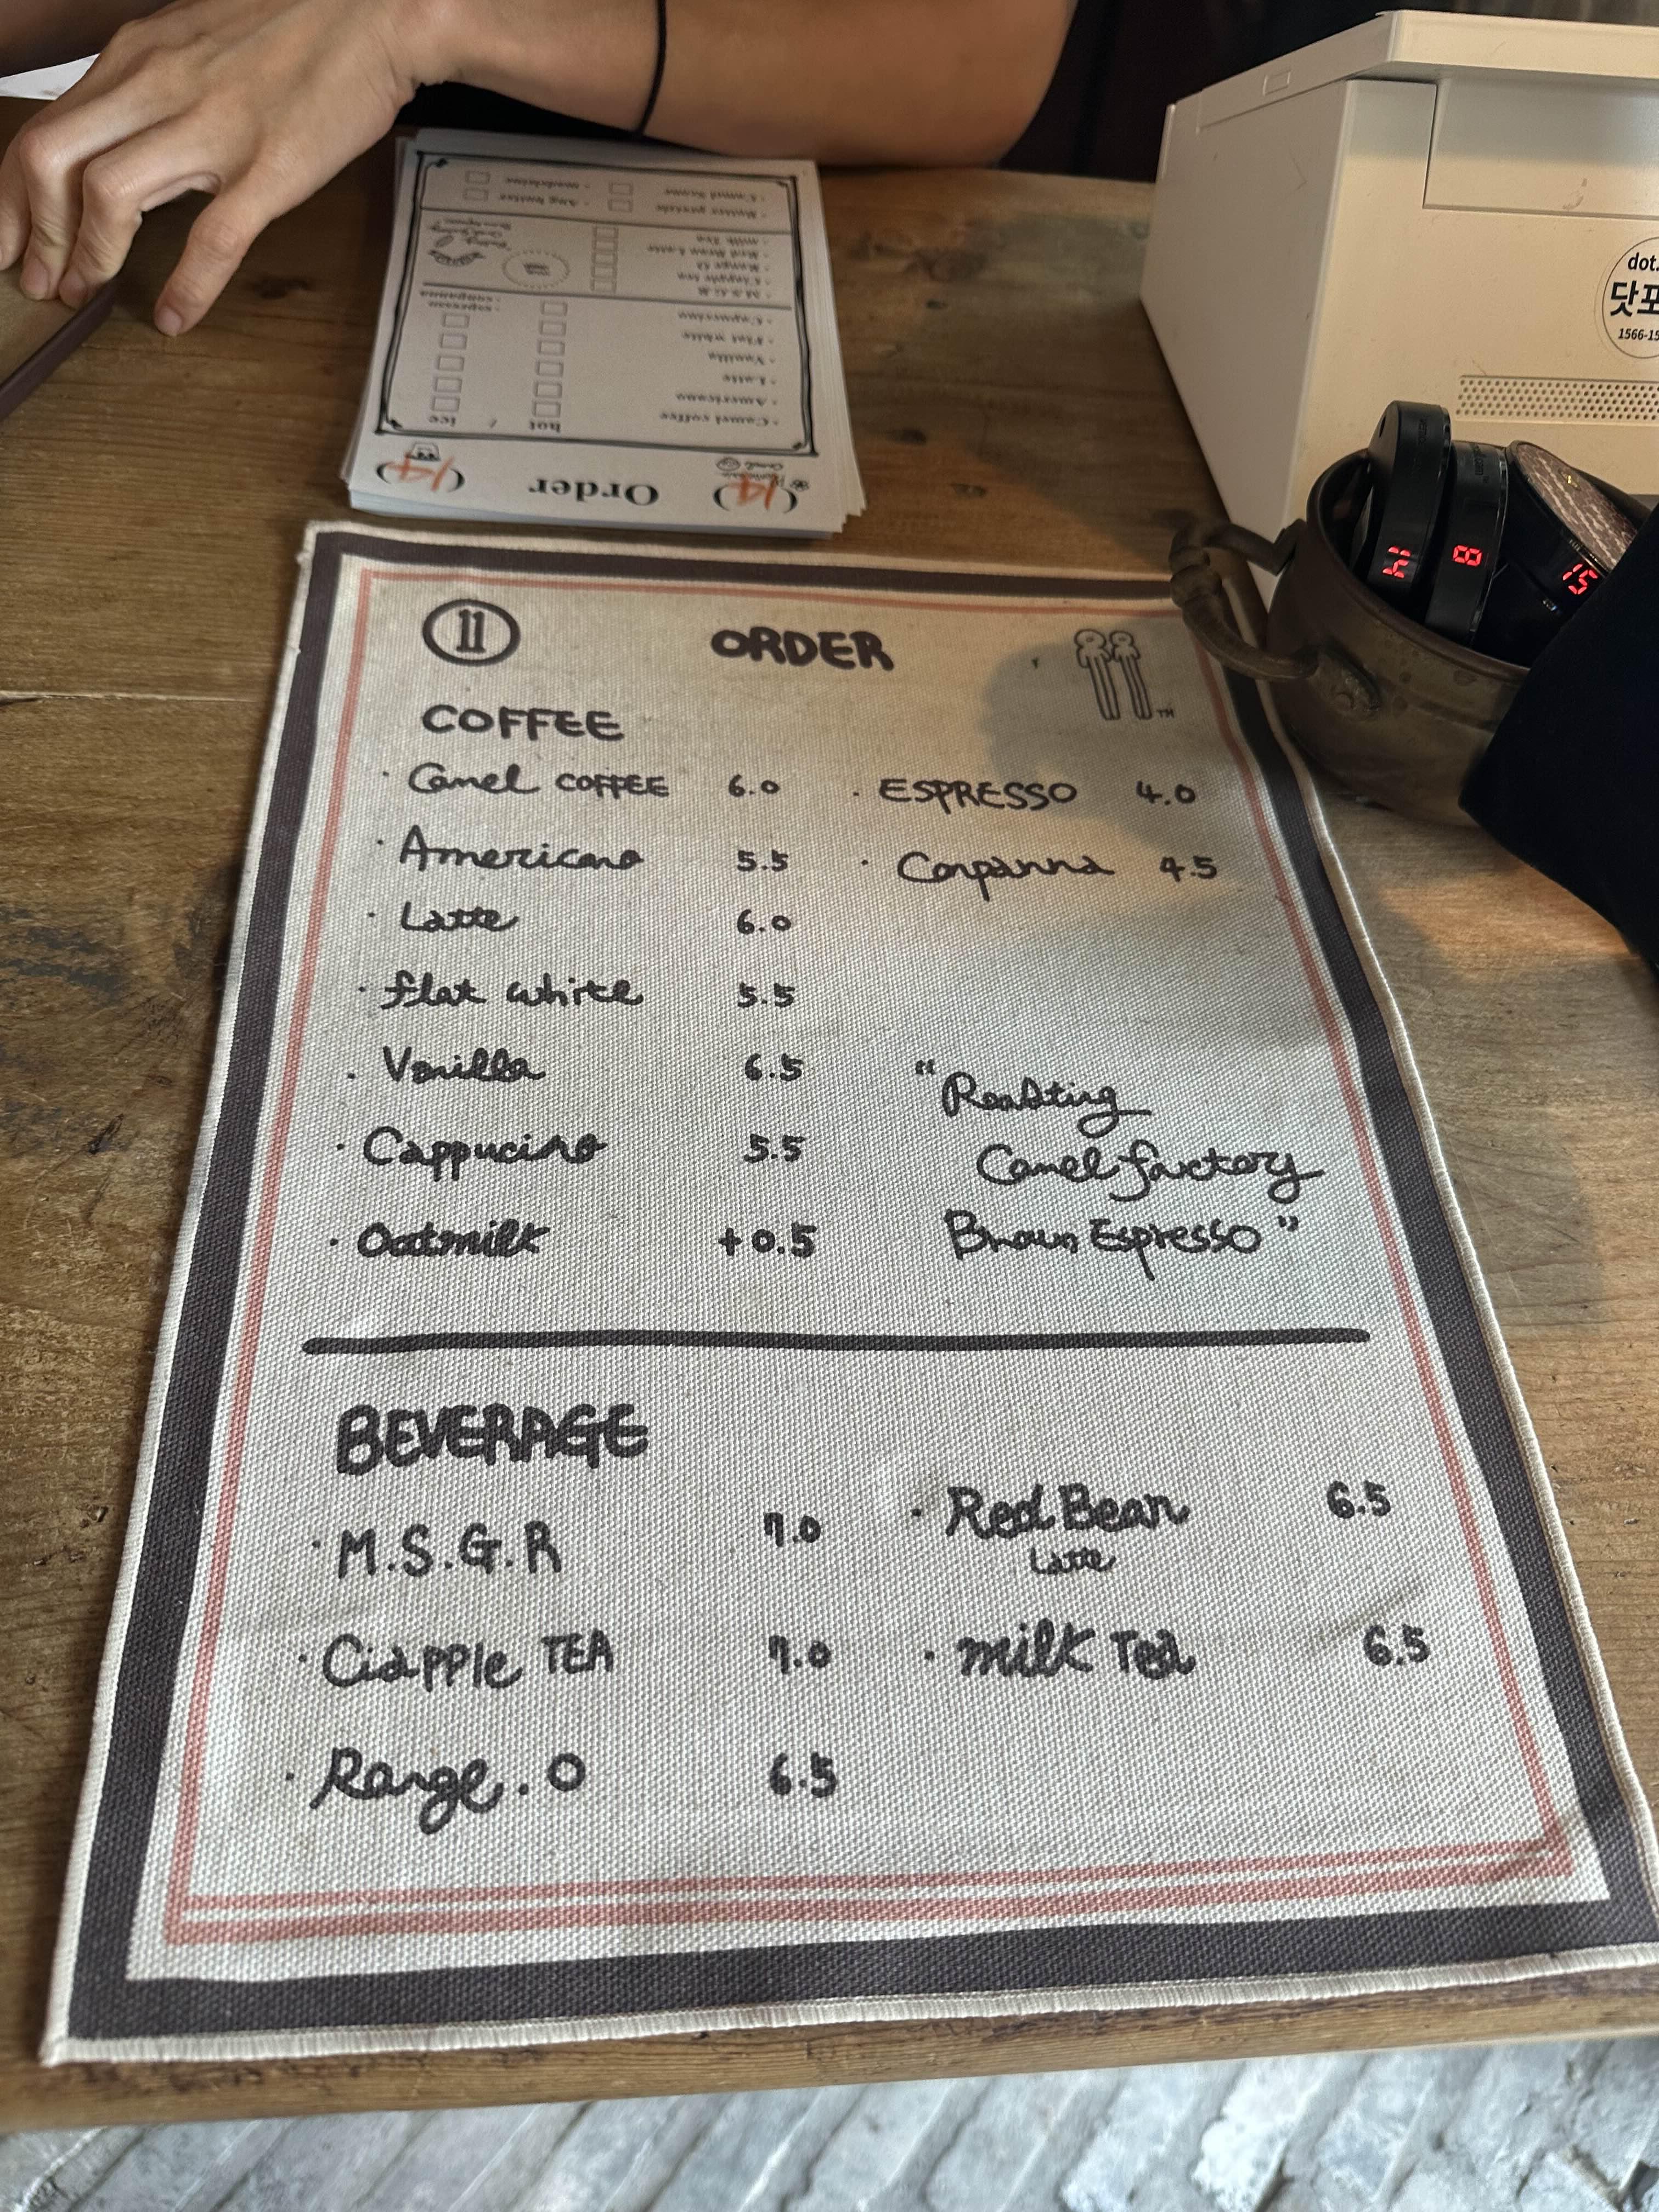 Order
(14) (14)
hot / ice
- Camel coffee
- Americano
- Latte
- Vanilla
- Flat white
- Capuccino
- espresso
- conpanna
- M.S.G.R
- Ciapple tea
- Range O
- Red Bean Latte
- milk Tea
- Butter pretzle
- Ang butter
- Camel Scone
- madeleine
dot.
닷포
1566-15
8
15
11 ORDER
TM
COFFEE
· Camel COFFEE 6.0 · ESPRESSO 4.0
· Americano 5.5 · Conpanna 4.5
· Latte 6.0
· flat white 5.5
· Vanilla 6.5 "Roasting
· Cappucino 5.5 Camel factory
· Oatmilk +0.5 Brown Espresso"
BEVERAGE
· M.S.G.R 7.0 · Red Bean 6.5
Latte
· Ciapple TEA 7.0 · milk Tea 6.5
· Range.O 6.5